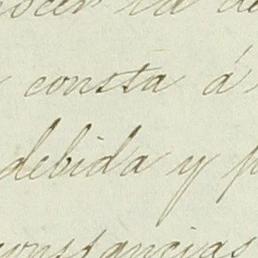 consta á
debida y
constancias